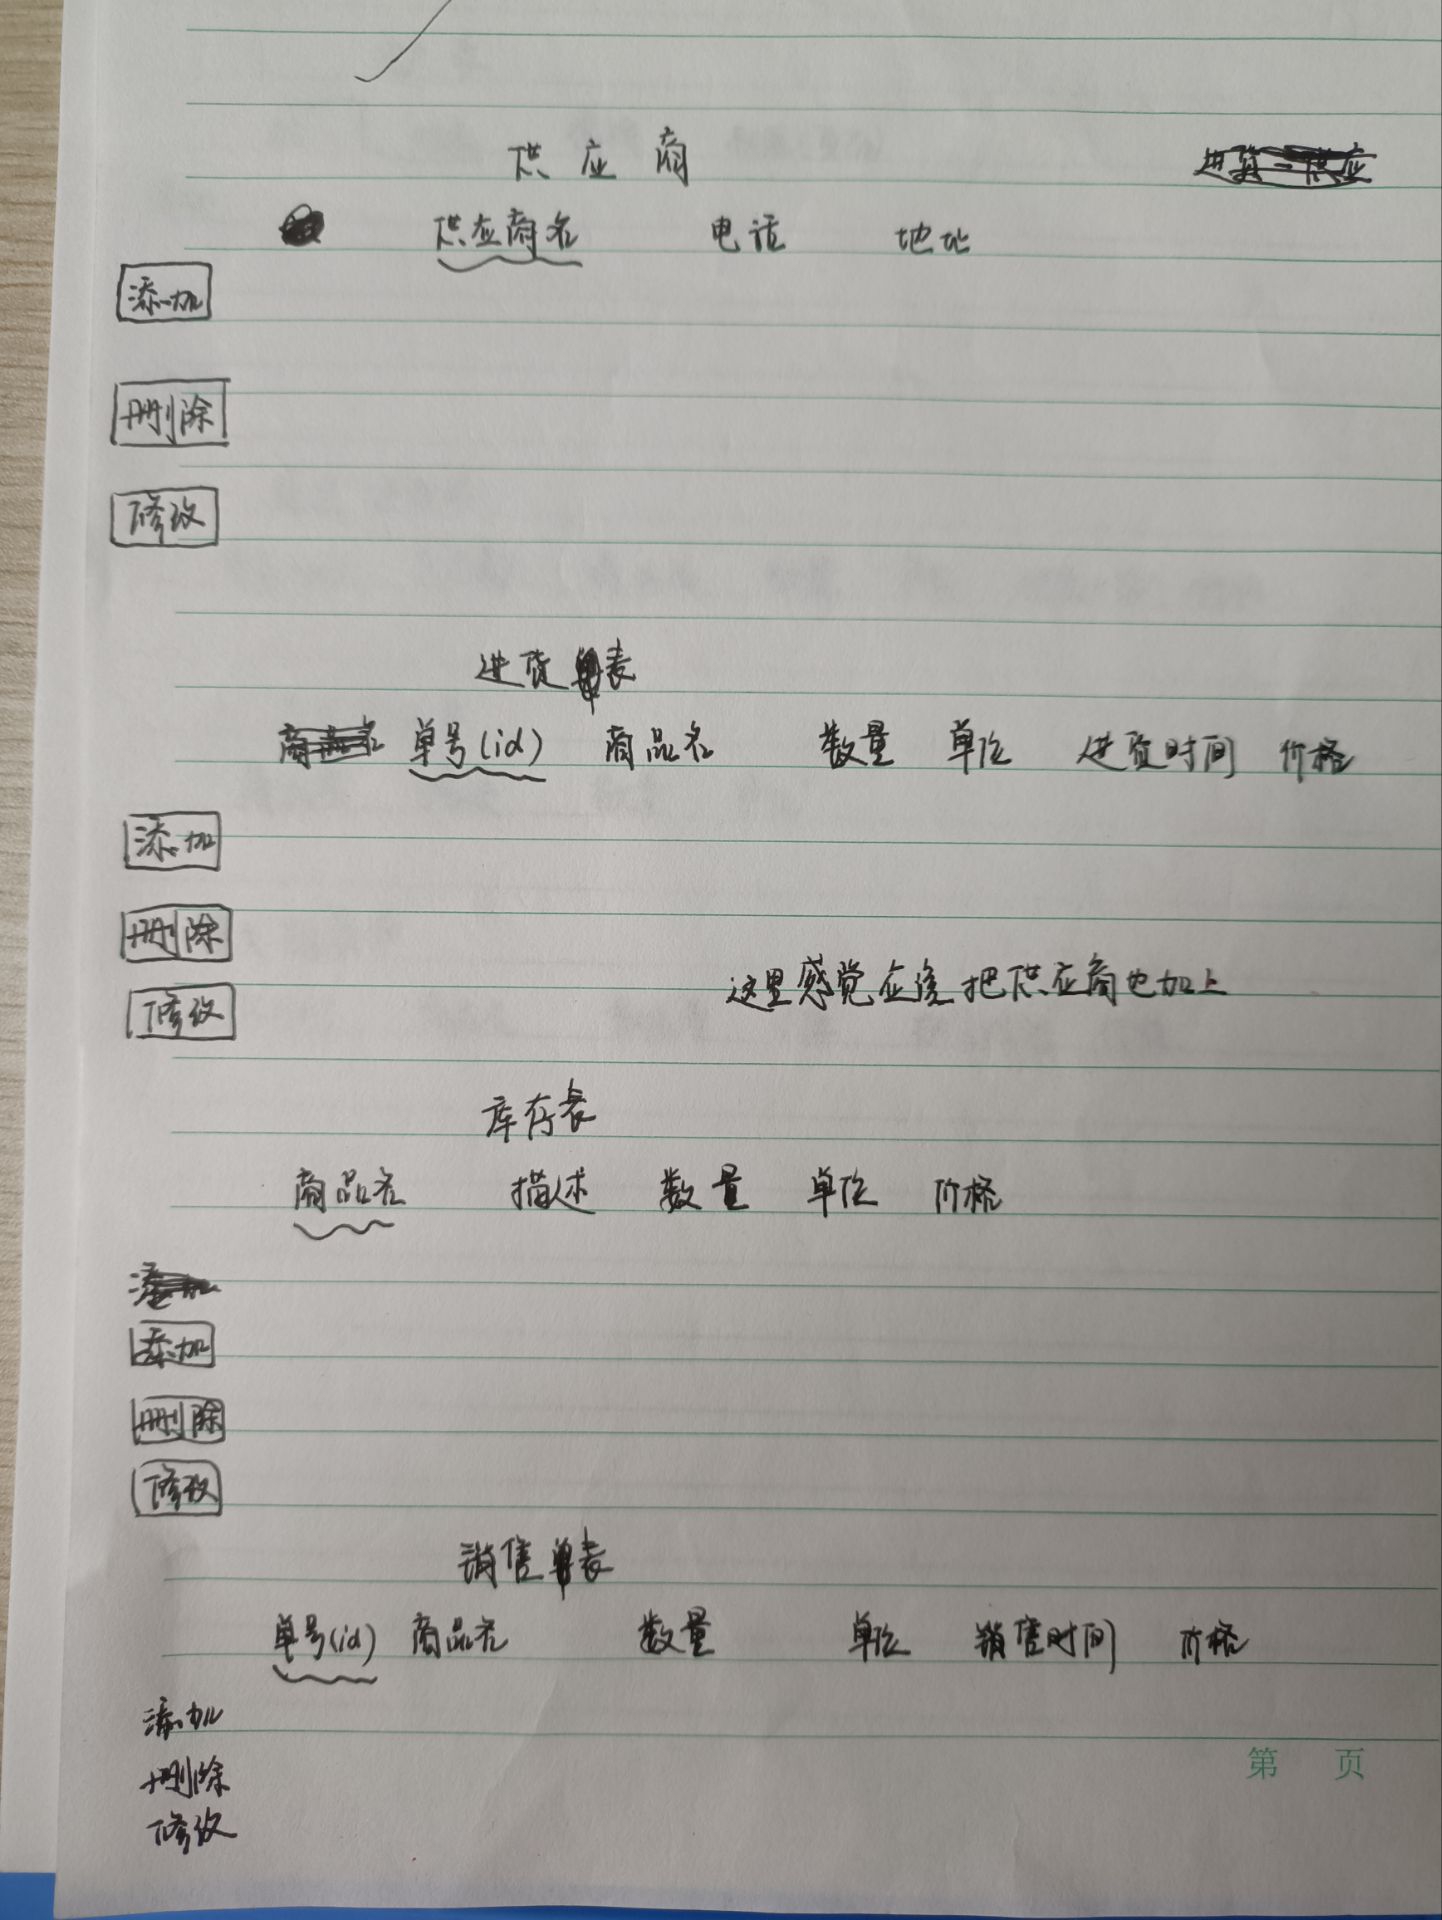 供应商
供应商名 电话 地址
添加
删除
修改
进货表
单号(id) 商品名 数量 单位 进货时间 价格
添加
删除
这里感觉应该把供应商也加上
修改
库存表
商品名 描述 数量 单位 价格
添加
删除
修改
销售表
单号(id) 商品名 数量 单位 销售时间 价格
添加
删除
修改
第 页